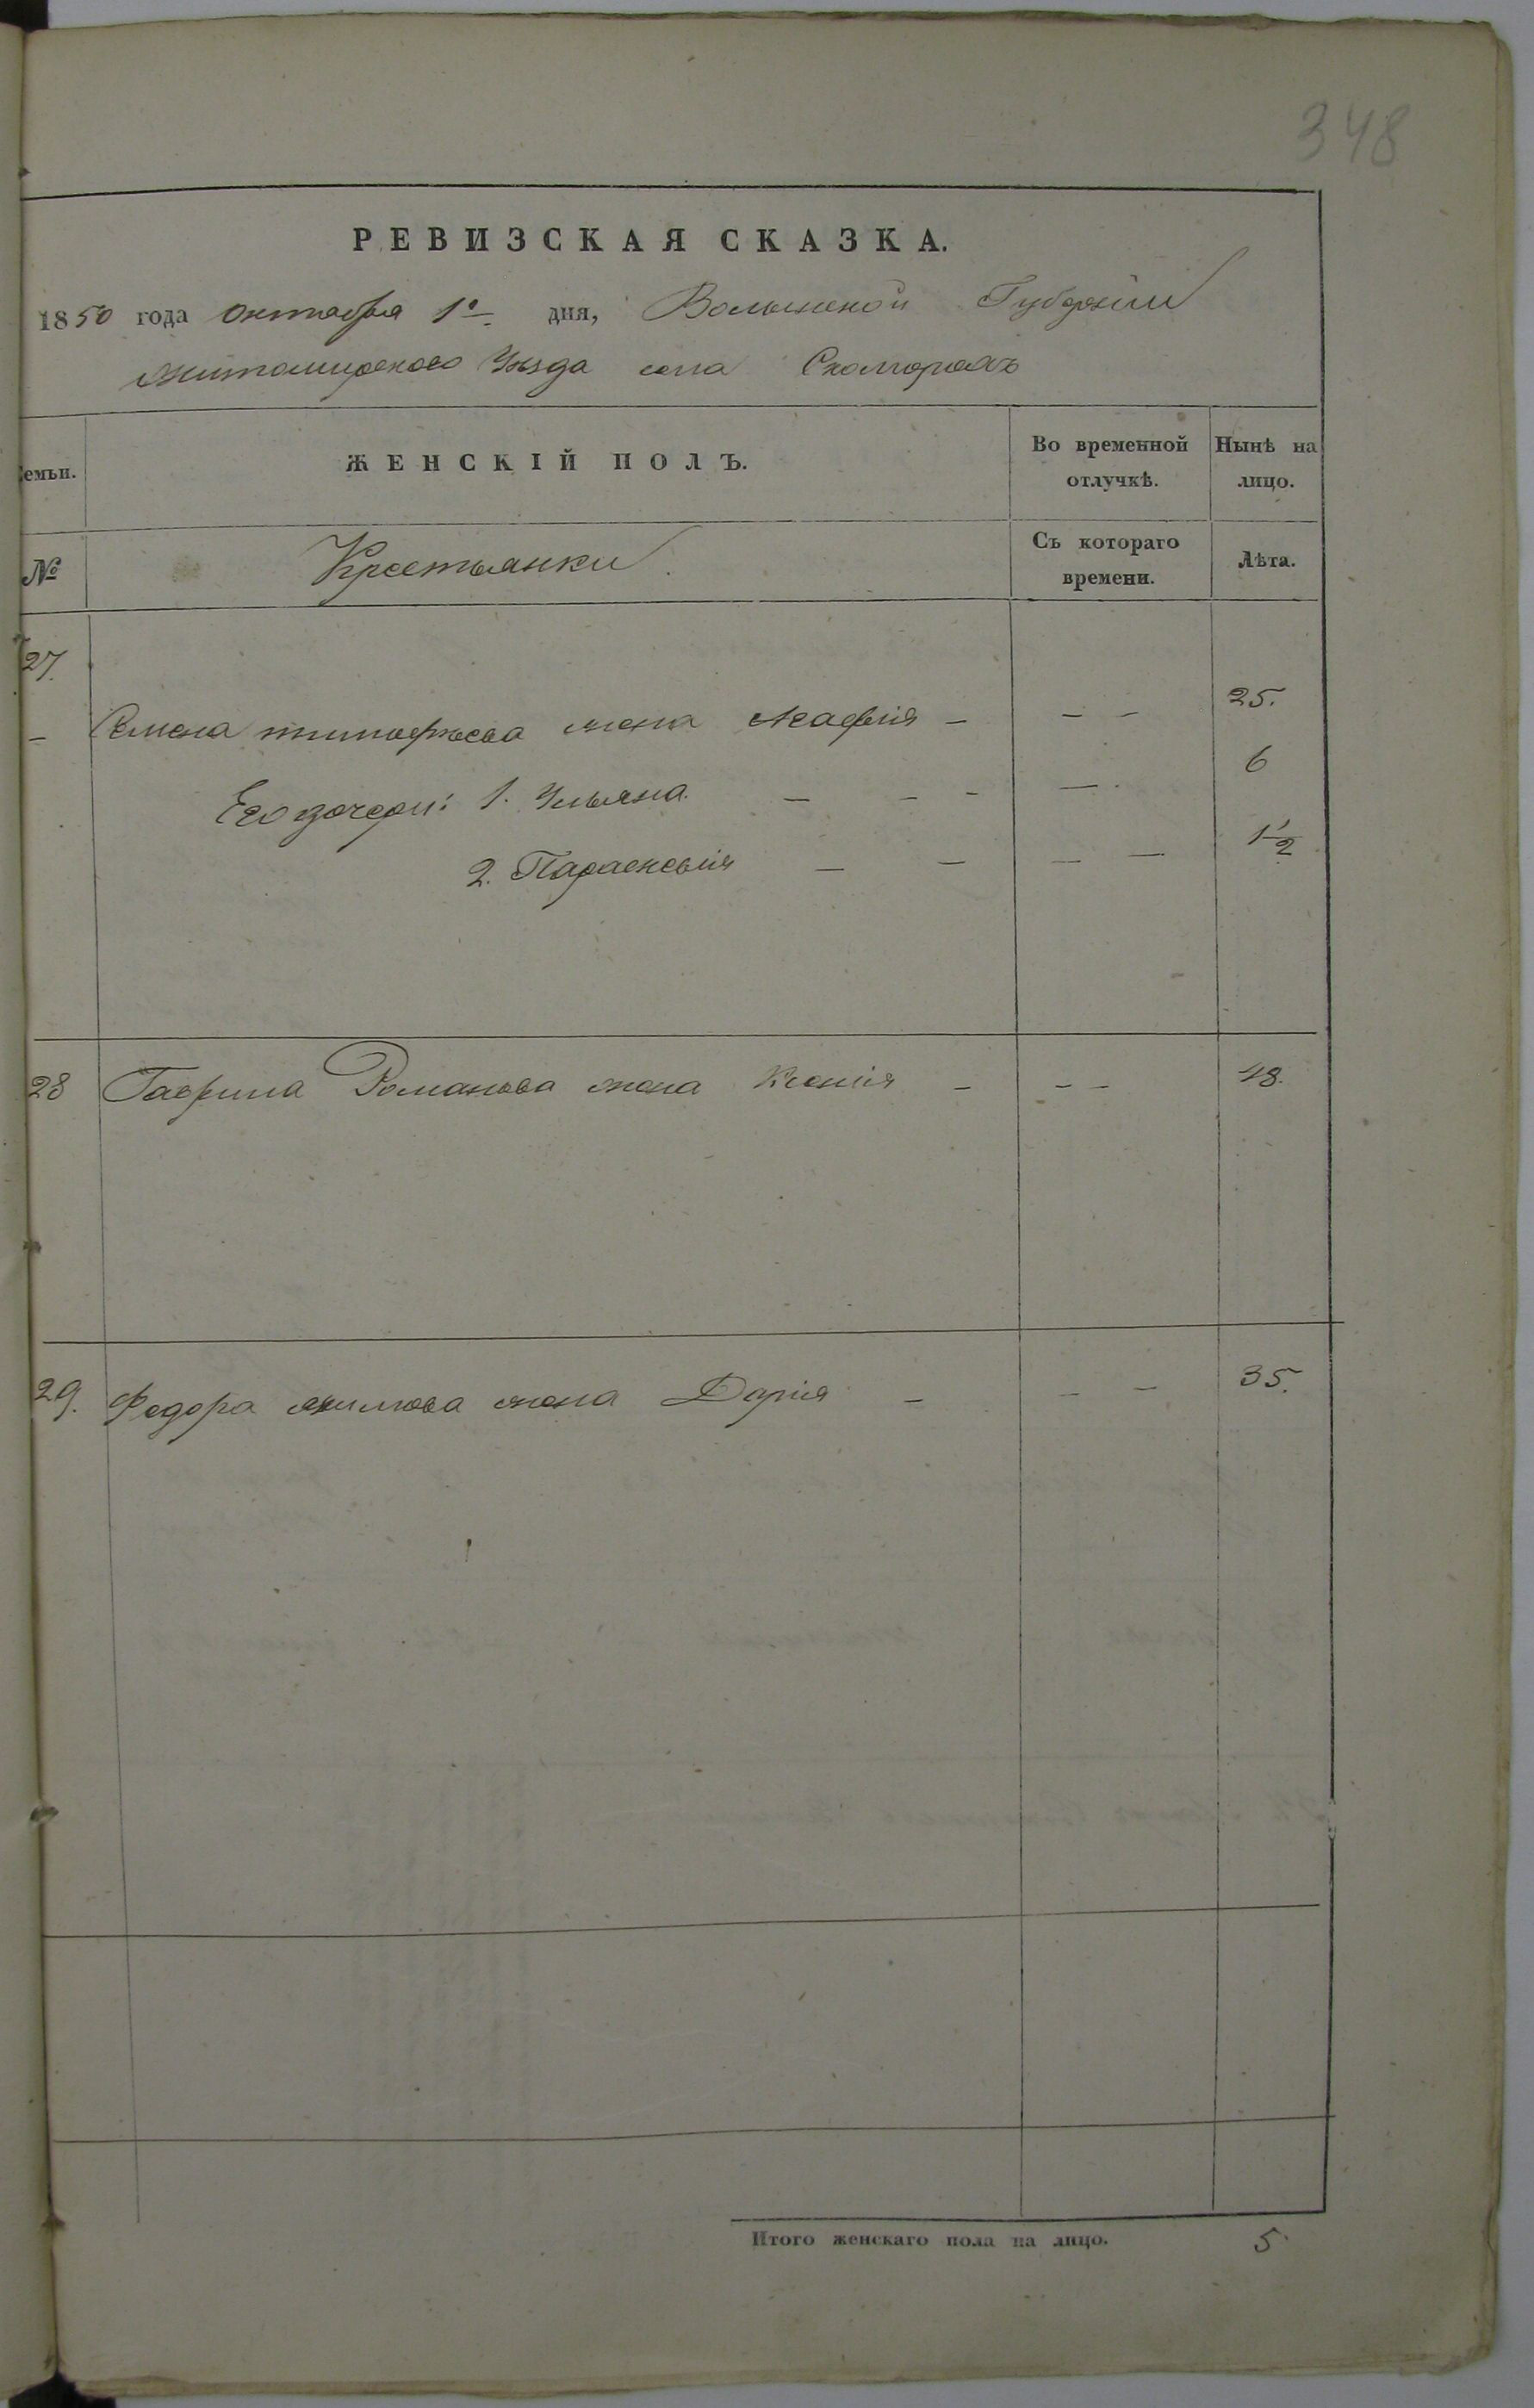 348
РЕВИЗСКАЯ СКАЗКА.
1850 года октября 1го дня, Волынской Губернии
Житомирского Уезда села Скоморохъ
Семьи. ЖЕНСКІЙ ПОЛЪ. Во временной отлучкѣ. Нынѣ на лицо.
№ Крестьянки Съ котораго времени. Лѣта.
27.
– Семена тимофеева жена Агафия – – – 25.
Его дочери: 1. Ульяна. – – – – 6
2. Параскевия – – – – 1 1/2
28 Гаврила Романова жена Ксения – – – 48.
29. Федора Акимова жена Дария – – – 35.
Итого женскаго пола на лицо. 5